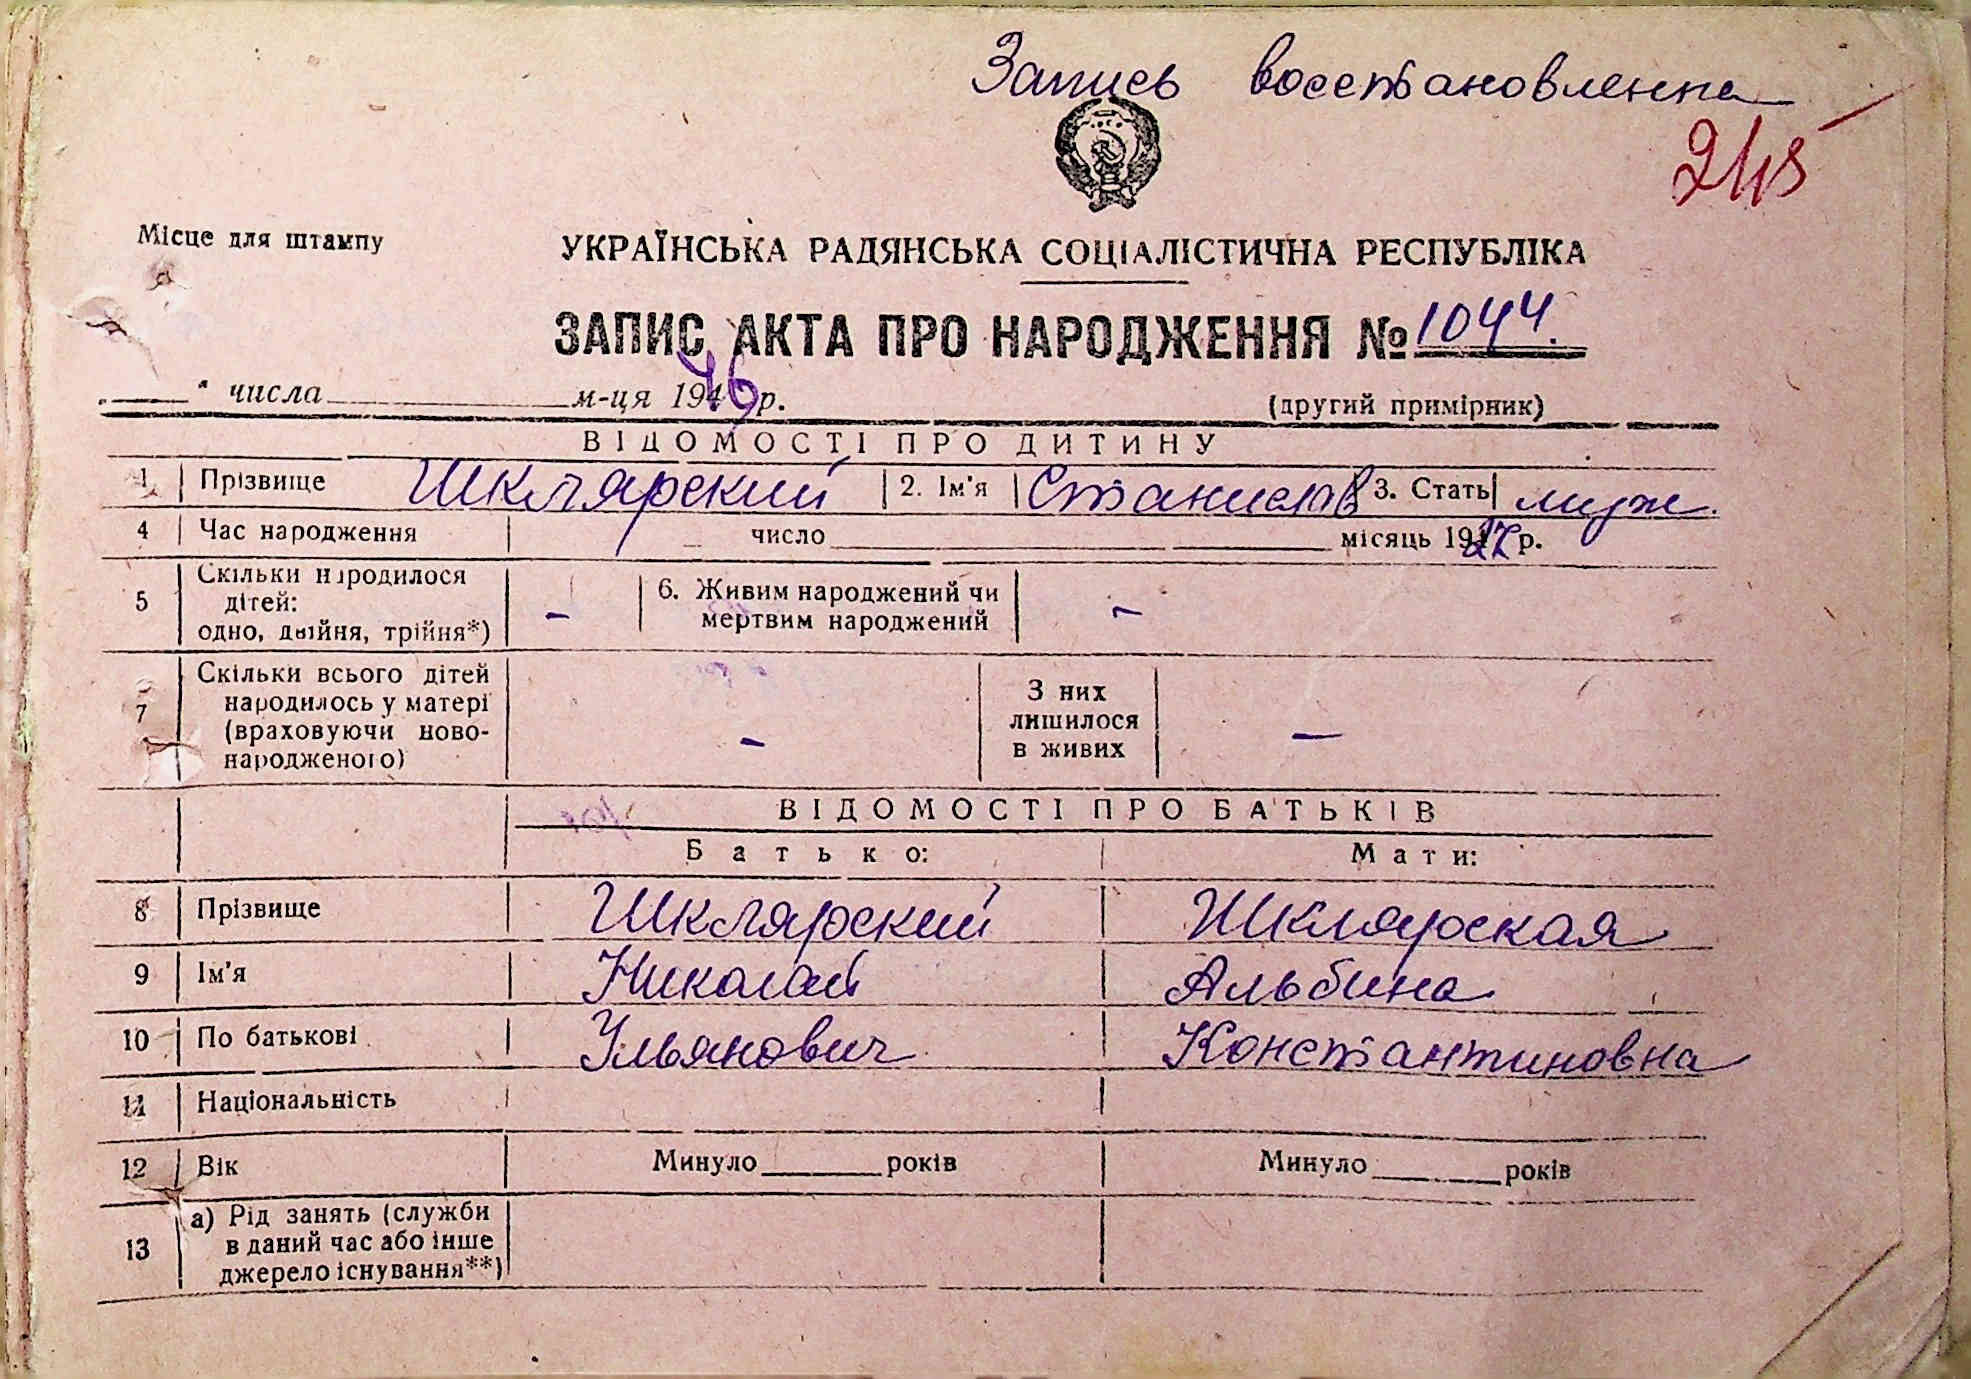 Запись восстановленна
245
Місце для штампу
УКРАЇНСЬКА РАДЯНСЬКА СОЦІАЛІСТИЧНА РЕСПУБЛІКА
ЗАПИС АКТА ПРО НАРОДЖЕННЯ № 1044.
" числа м-ця 1946 р.
(другий примірник)
ВІДОМОСТІ ПРО ДИТИНУ
1 Прізвище Шклярский 2. Ім'я Станислав 3. Стать муж.
4 Час народження число місяць 1937 р.
5 Скільки народилося дітей: одно, двійня, трійня*) - 6. Живим народжений чи мертвим народжений -
7 Скільки всього дітей народилось у матері (враховуючи ново-народженого) - З них лишилося в живих -
ВІДОМОСТІ ПРО БАТЬКІВ
Батько: Мати:
8 Прізвище Шклярский Шклярская
9 Ім'я Николай Альбина
10 По батькові Ульянович Константиновна
11 Національність
12 Вік Минуло років Минуло років
13 а) Рід занять (служби в даний час або інше джерело існування**)